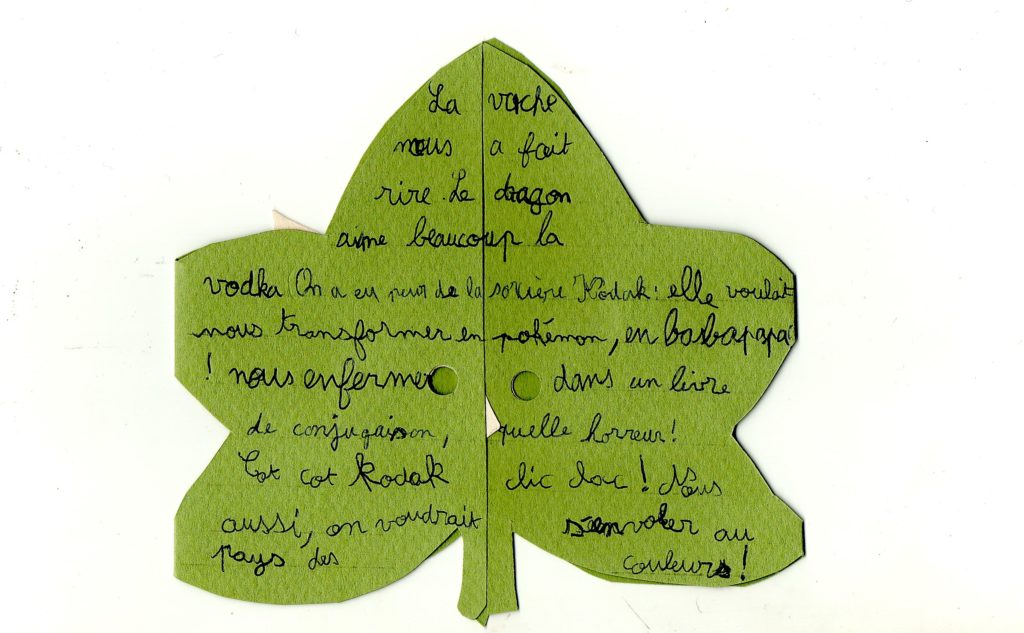 La vache
nous a fait
rire. Le dragon
aime beaucoup la
vodka On a eu peur de la sorcière Kodak : elle voulait
nous transformer en pokémon, en barbapapa
! nous enfermer dans un livre
de conjugaison, quelle horreur !
Cot cot kodak clic clac ! Nous
aussi, on voudrait s'envoler au
pays des couleurs !